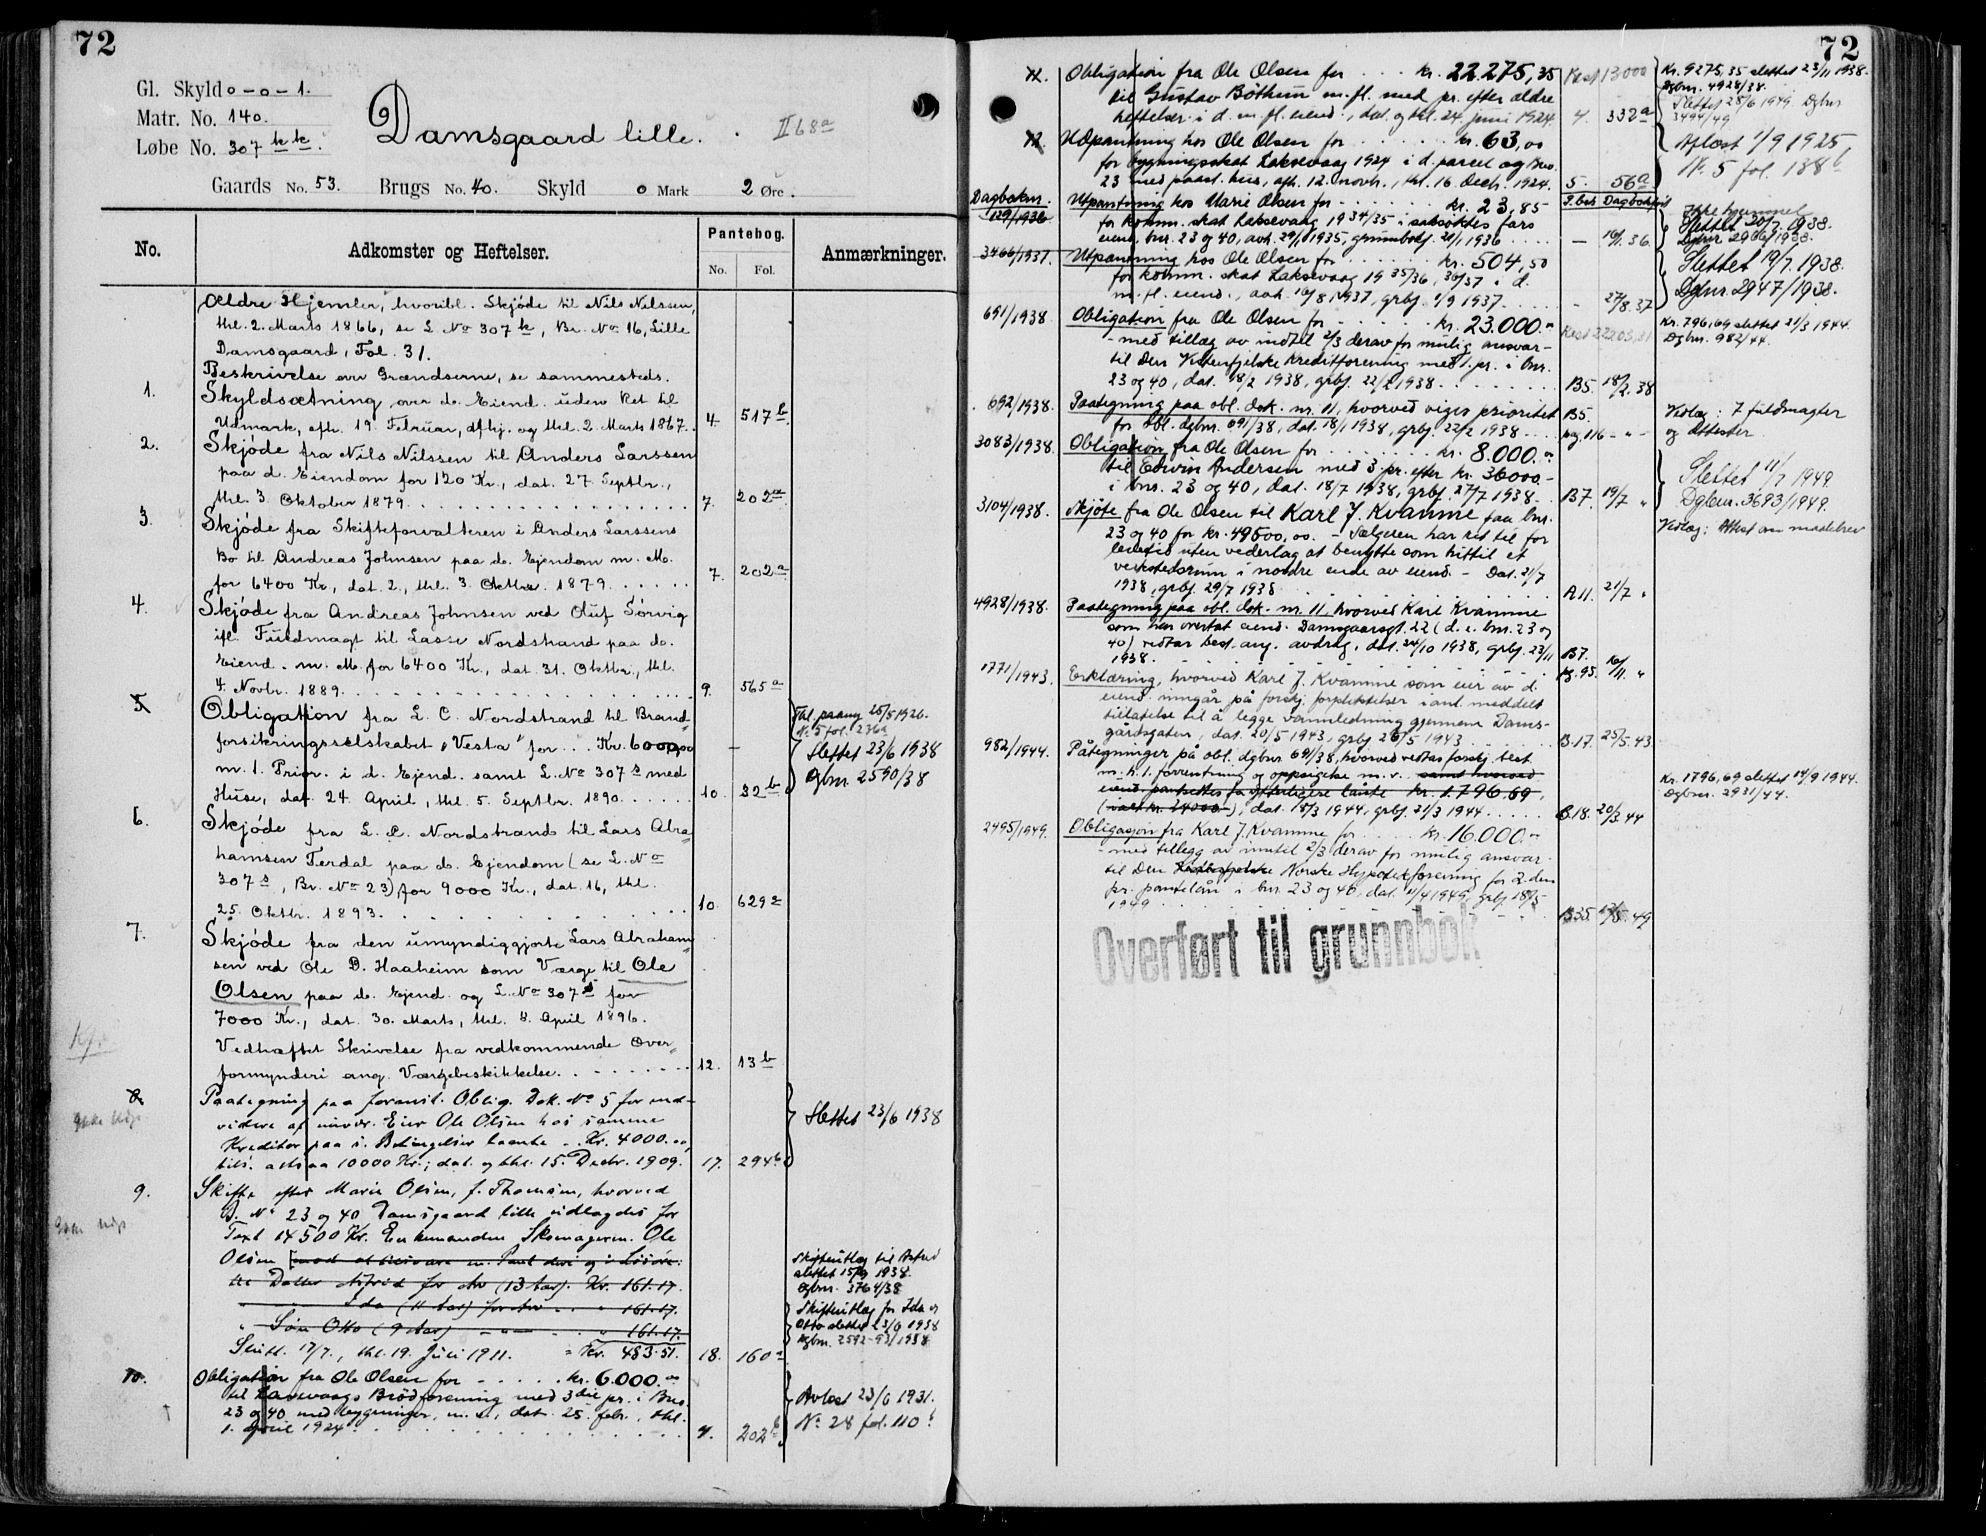 72
Gl. Skyld 0-0-1.
Matr. No. 140.
Løbe No. 307 kk.
Damsgaard lille.
II 68a
Gaards No. 53. Brugs No. 40. Skyld 0 Mark 2 Øre.
No.
Adkomster og Heftelser.
Pantebog.
No. Fol.
Anmærkninger.
Ældre Hjemler, hvoribl. Skjøde til Nils Nilssen,
thl. 2. Marts 1866, se L. No 307 k, Br. No. 16, Lille
Damsgaard, Fol. 31.
Beskrivelse over Grændserne, se sammesteds.
1. Skyldsætning over d. Eiend. uden Ret til
Udmark, afh. 19. Februar, afhj. og thl. 2. Marts 1867. 4. 517 b
2. Skjøde fra Nils Nilssen til Anders Larssen
paa d. Eiendom for 120 Kr., dat. 27. Septbr.,
thl. 3. Oktober 1879. 7. 202a
3. Skjøde fra Skifteforvalteren i Anders Larssens
Bo til Andreas Johnsen paa d. Ejendom m. M.
for 6400 Kr., dat. 2., thl. 3. Oktbr. 1879. 7. 202a
4. Skjøde fra Andreas Johnsen ved Oluf Sørvig
ifl. Fuldmagt til Lasse Nordstrand paa d.
Eiend. m. M. for 6400 Kr., dat. 31. Oktbr., thl.
4. Novbr. 1889. 9. 565a
5. Obligation fra L. C. Nordstrand til Brand-
forsikringsselskabet "Vesta" for .. Kr. 6000,00
m. 1. Prior. i d. Ejend. samt L. No 307 s med
Huse, dat. 24. April, thl. 5. Septbr. 1890. 10. 32b
Thl. paateg 26/5 1926.
No 5 fol. 236a
Slettet 23/6 1938
Dgbnr. 2590/38
6. Skjøde fra L. C. Nordstrand til Lars Abra-
hamsen Terdal paa d. Ejendom (se L. No
307 s, Br. No 23) for 9000 Kr., dat. 16., thl.
25. Oktbr. 1893. 10. 629a
7. Skjøde fra den umyndiggjorte Lars Abraham-
sen ved Ole D. Haaheim som Værge til Ole
Olsen paa d. Ejend. og L. No 307 s for
7000 Kr., dat. 30. Marts, thl. 8. April 1896.
Vedhæftet Skrivelse fra vedkommende Over-
formynderi ang. Værgebeskikkelse. 12. 13b
8. Paategning paa foranst. Oblig. Dok. No 5 for end-
videre af nuvær. Eier Ole Olsen hos samme
Kreditor paa s. Betingelser laante .. Kr. 4000.00,
tils. altsaa 10000 Kr.; dat. og thl. 15. Decbr. 1909. 17. 294b
Slettet 23/6 1938
9. Skifte efter Marie Olsen, f. Thomsen, hvorved
B. No 23 og 40 Damsgaard lille udlagdes for
Taxt 14500 Kr. Enkemanden Skomagerm. Ole
Olsen
Datter Astrid for Arv (13 Aar). Kr. 161.17.
" Ida (11 Aar) for Arv " 161.17.
" Søn Otto (9 Aar) " 161.17.
Slutt. 17/7., thl. 19. Juli 1911. = Kr. 483.51. 18. 160a
Skifteutlæg til Astrid
slettet 15/9 1938.
Dgbnr. 3764/38
Skifteutlæg for Ida og
Otto slettet 23/6 1938
Dgbnr. 2592-93/1938
10. Obligation fra Ole Olsen for - - - kr. 6.000.00
til Laksevaags Brødforening med 3die pr. i Bno.
23 og 40 med bygninger, m. v., dat. 25. febr., thl.
1. april 1924. 4. 202b
Avløst 23/6 1931.
No 28 fol. 110b
72
11. Obligation fra Ole Olsen for . . . kr. 22.275,35
til Gustav Bøthun m. fl. med pr. efter ældre
heftelser i d. m. fl. eiend., dat. og thl. 24. juni 1924. 4. 332a
Rest 13000
Kr. 9275,35 slettet 23/11 1938.
Dgbnr. 4928/38.
Slettet 28/6 1949. Dgbnr
3494/49
12. Utpantning hos Ole Olsen for kr. 63,00
for bygningsskat Laksevaag 1924 i d. parcel og Bno.
23 med paast. hus, afh. 12. novbr., thl. 16. Decb. 1924. 5. 56a
Avløst 1/9 1925
No 5 fol. 188b
Dagboknr.
P. bok Dagbokført
129/1936 Utpantning hos Marie Olsen for kr. 23,85
for komm. skat Laksevaag 1934/35 i saksøktes fars
eiend. bnr. 23 og 40, avh. 29/1 1935, grunnbokf. 21/1 1936 - 16/1.36.
Ikke hjemmel
Slettet 20/7 1938.
Dgbnr 2966/1938.
3466/1937. Utpantning hos Ole Olsen for kr. 504,50
for komm. skat Laksevaag 1935/36, 36/37 i d.
m. fl. eiend., avh. 16/8 1937, grbf. 1/9 1937. - 27/8.37
Slettet 19/7 1938.
Dgbnr. 2947/1938.
691/1938. Obligation fra Ole Olsen for kr. 23.000.00
- med tillæg av indtil 2/3 derav for mulig ansvar -
til Den Vestenfjelske Kreditforening med 1. pr. i bnr.
23 og 40, dat. 18/2 1938, grbf. 22/2 1938. B5. 18/2.38
Kr. 796,69 slettet 21/3 1944.
Dgbnr. 982/44.
692/1938. Paategning paa obl. dok. nr. 11, hvorved viges prioritet
for obl. dgbnr. 691/38, dat. 18/1 1938, grbf. 22/2 1938. B5. pag. 116 - " -
Vedlæg: 7 fuldmagter
og attester.
3083/1938. Obligation fra Ole Olsen for kr. 8.000.00
til Edwin Andersen med 3. pr. efter kr. 36000.-
i bnr. 23 og 40, dat. 18/7 1938, grbf. 27/7 1938. B7. 19/7 "
Slettet 11/7 1949.
Dgbnr. 3693/1949.
3104/1938. Skjøte fra Ole Olsen til Karl J. Kvamme paa bnr.
23 og 40 for kr. 49500,00. - Sælgeren har ret til for
levetid uten vederlag at benytte som hittil et
verkstedsrum i nordre ende av eiend. - Dat. 21/7
1938, grbf. 29/7 1938. A11. 21/7 "
Vedlæg: Attest om maalebrev
4928/1938. Paategning paa obl. dok. nr. 11, hvorved Karl Kvamme
som har overtat eiend. Damsgaardsgt. 22 (d. e. bnr. 23 og
40) vedtar best. ang. avdrag, dat. 24/10 1938, grbf. 23/11
1938. B7. pg. 95. 16/11. "
1771/1943. Erklæring, hvorved Karl J. Kvamme som eier av d.
eiend. inngår på forskj. forpliktelser i anl. meddelt
tillatelse til å legge vannledning gjennem Dams-
gårdsgaten, dat. 20/5 1943, grbf 26/5 1943. B.17. 25/5.43
982/1944. Påtegninger på obl. dgbnr 691/38, hvorved vedtas forskj. best.
m. h. t. forrentning og oppsigelse m. v. samt hvorved
eiend. pantsettes for ytterligere lånte kr. 1.796.69,
dat. 18/3 1944, grbf. 21/3 1944. B.18. 20/3.44
Kr. 1796,69 slettet 14/9 1944.
Dgbnr. 2931/44.
2495/1949. Obligasjon fra Karl J. Kvamme for kr. 16.000.-
- med tillegg av inntil 2/3 derav for mulig ansvar -
til Den Vestenfjelske Norske Hypotekforening for 2. den
pr. pantelån i bnr 23 og 40, dat. 11/4 1949, grbf 18/5
1949 B35. 49
Overført til grunnbok